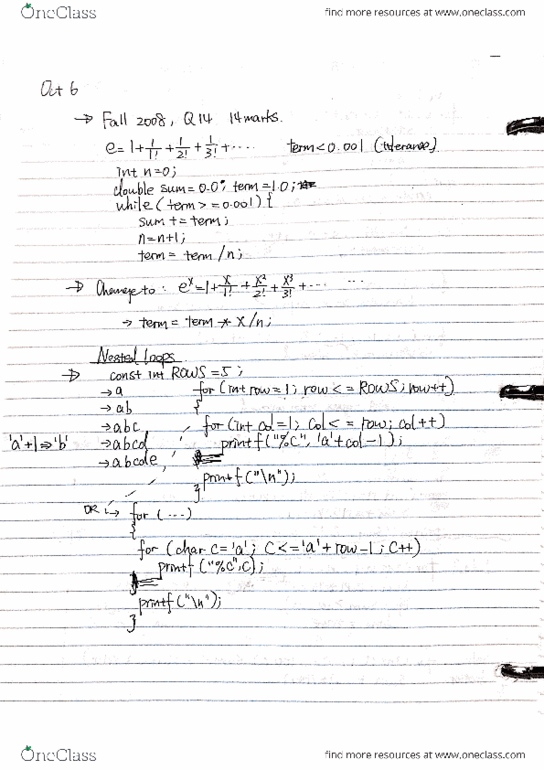 OneClass
find more resources at www.oneclass.com
Oct 6
→ Fall 2008, Q14 14 marks.
e = 1 + 1/1! + 1/2! + 1/3! + .... term < 0.001 (tolerance)
int n=0;
double sum = 0.0, term = 1.0;
while (term >= 0.001) {
sum += term;
n = n+1;
term = term / n;
→ Change to : eˣ = 1 + x/1! + x²/2! + x³/3! + ... ...
→ term = term * x/n;
Nested Loops
→ const int ROWS = 5;
→ a for (int row = 1; row <= ROWS; row++)
→ ab {
→ abc for (int col = 1; col <= row; col++)
'a'+1 ⇒ 'b' → abcd printf("%c", 'a'+col-1);
→ abcde
printf("\n");
}
OR → for (...)
{
for (char c = 'a'; c <= 'a' + row-1; c++)
printf("%c", c);
printf("\n");
}
OneClass
find more resources at www.oneclass.com